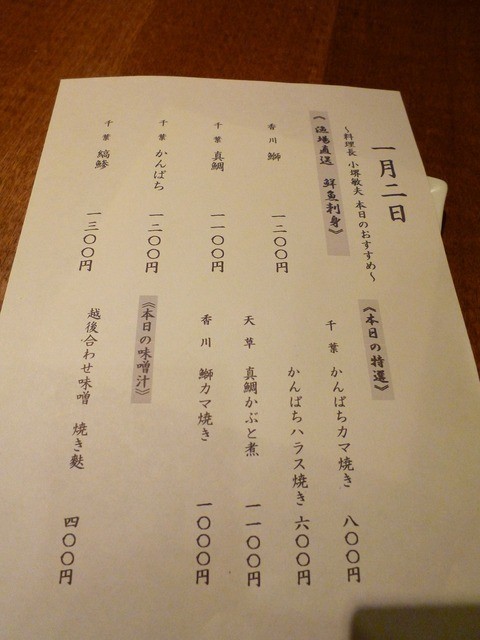 一月二日
～料理長 小堺敏夫 本日のおすすめ～
《漁場直送 鮮魚刺身》
香川 鰤 一二〇〇円
千葉 真鯛 一一〇〇円
千葉 かんぱち 一二〇〇円
千葉 縞鯵 一三〇〇円
《本日の特選》
千葉 かんぱちカマ焼き 八〇〇円
かんぱちハラス焼き 六〇〇円
天草 真鯛かぶと煮 一一〇〇円
香川 鰤カマ焼き 一〇〇〇円
《本日の味噌汁》
越後合わせ味噌 焼き麩 四〇〇円